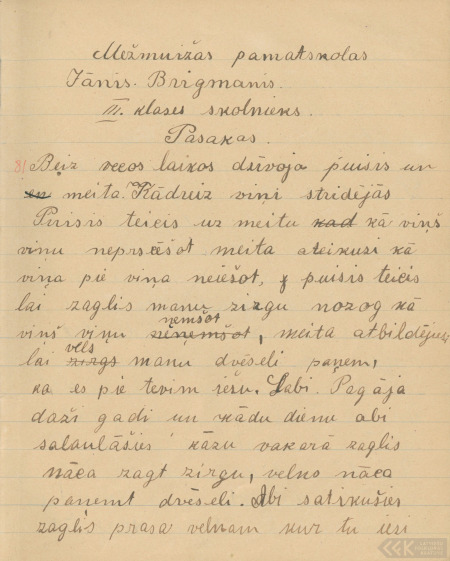 Mežmuižas pamatskolas
Jānis. Brigmanis.
III. klases skolnieks.
Pasakas.
81 Beiz vecos laikos dzīvoja puisis un
un meita. Kādreiz viņi strīdējās
Puisis teicis uz meitu kad kā viņš
viņu neprecēšot meita ateikusi kā
viņa pie viņa neiešot, puisis teicis
lai zaglis manu zirgu nozog kā
ņemšot
viņš viņu neņemšot, meita atbildējusi
vells
lai zirgs manu dvēseli paņem,
ka es pie tevim iešu. Labi. Pagāja
daži gadi un kādu dienu abi
salaulāšies kāzu vakarā zaglis
nāca zagt zirgu, velns nāca
paņemt dvēseli. Abi satikušies
zaglis prasa velnam kur tu iesi